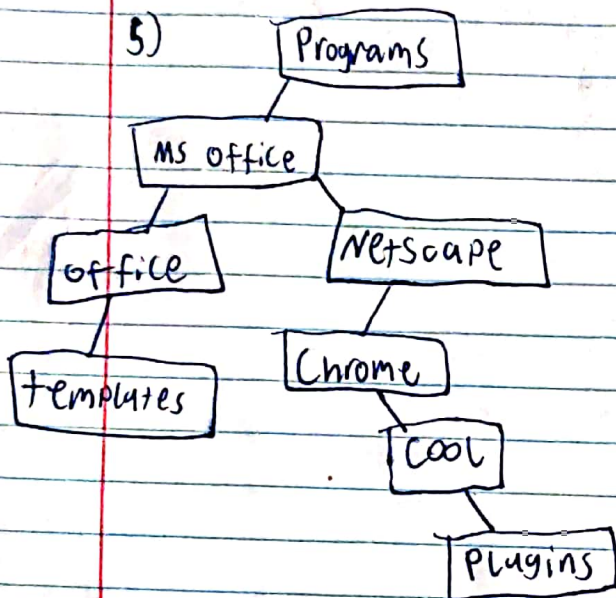 5)
Programs
MS office
office
Netscape
templates
Chrome
COOL
Plugins